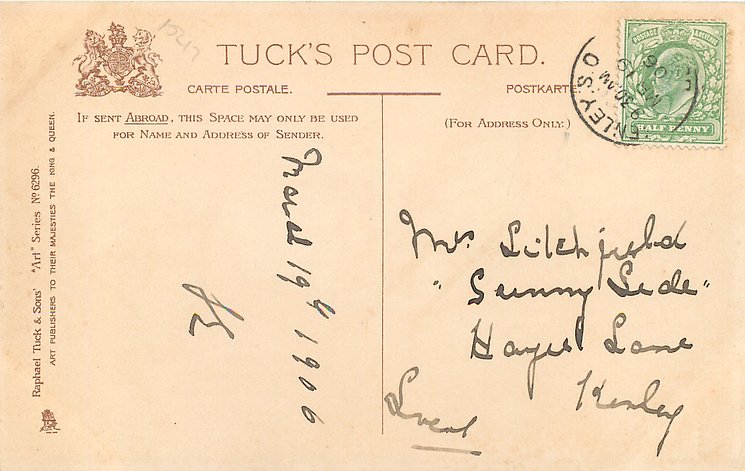 1547
TUCK'S POST CARD.
CARTE POSTALE.
POSTKARTE
IF SENT ABROAD, THIS SPACE MAY ONLY BE USED
FOR NAME AND ADDRESS OF SENDER.
(FOR ADDRESS ONLY.)
Raphael Tuck & Sons' "Art" Series No 6296.
ART PUBLISHERS TO THEIR MAJESTIES THE KING & QUEEN.
March 19th 1906
POSTAGE & REVENUE
HALF PENNY
9.30AM
Mrs Litchfield
"Sunny Side"
Hayes Lane
Kenley